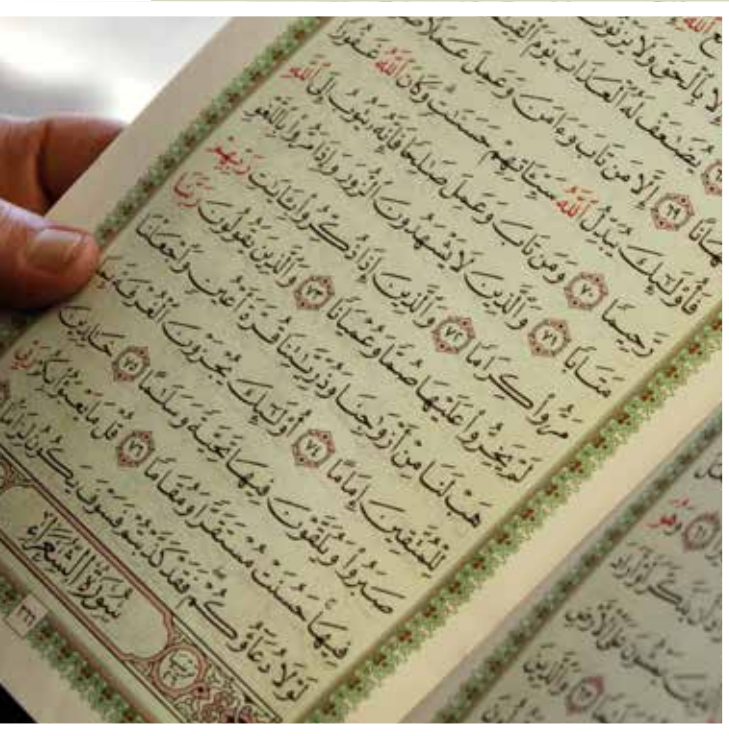 إِلَّا بِٱلْحَقِّ وَلَا يَزْنُونَ
يُضَٰعَفْ لَهُ ٱلْعَذَابُ يَوْمَ
٦٩ إِلَّا مَن تَابَ وَءَامَنَ وَعَمِلَ عَمَلًا
فَأُو۟لَٰٓئِكَ يُبَدِّلُ ٱللَّهُ سَيِّـَٔاتِهِمْ حَسَنَٰتٍ وَكَانَ ٱللَّهُ غَفُورًا
رَّحِيمًا ٧٠ وَمَن تَابَ وَعَمِلَ صَٰلِحًا فَإِنَّهُۥ يَتُوبُ إِلَى ٱللَّهِ
مَتَابًا ٧١ وَٱلَّذِينَ لَا يَشْهَدُونَ ٱلزُّورَ وَإِذَا مَرُّوا۟ بِٱللَّغْوِ
مَرُّوا۟ كِرَامًا ٧٢ وَٱلَّذِينَ إِذَا ذُكِّرُوا۟ بِـَٔايَٰتِ رَبِّهِمْ
لَمْ يَخِرُّوا۟ عَلَيْهَا صُمًّا وَعُمْيَانًا ٧٣ وَٱلَّذِينَ يَقُولُونَ رَبَّنَا
هَبْ لَنَا مِنْ أَزْوَٰجِنَا وَذُرِّيَّٰتِنَا قُرَّةَ أَعْيُنٍ وَٱجْعَلْنَا
لِلْمُتَّقِينَ إِمَامًا ٧٤ أُو۟لَٰٓئِكَ يُجْزَوْنَ ٱلْغُرْفَةَ بِمَا
صَبَرُوا۟ وَيُلَقَّوْنَ فِيهَا تَحِيَّةً وَسَلَٰمًا ٧٥ خَٰلِدِينَ
فِيهَا حَسُنَتْ مُسْتَقَرًّا وَمُقَامًا ٧٦ قُلْ مَا يَعْبَؤُا۟ بِكُمْ رَبِّى
لَوْلَا دُعَآؤُكُمْ فَقَدْ كَذَّبْتُمْ فَسَوْفَ يَكُونُ لِزَامًا
سُورَةُ الشُّعَرَاءِ
٣٦٦